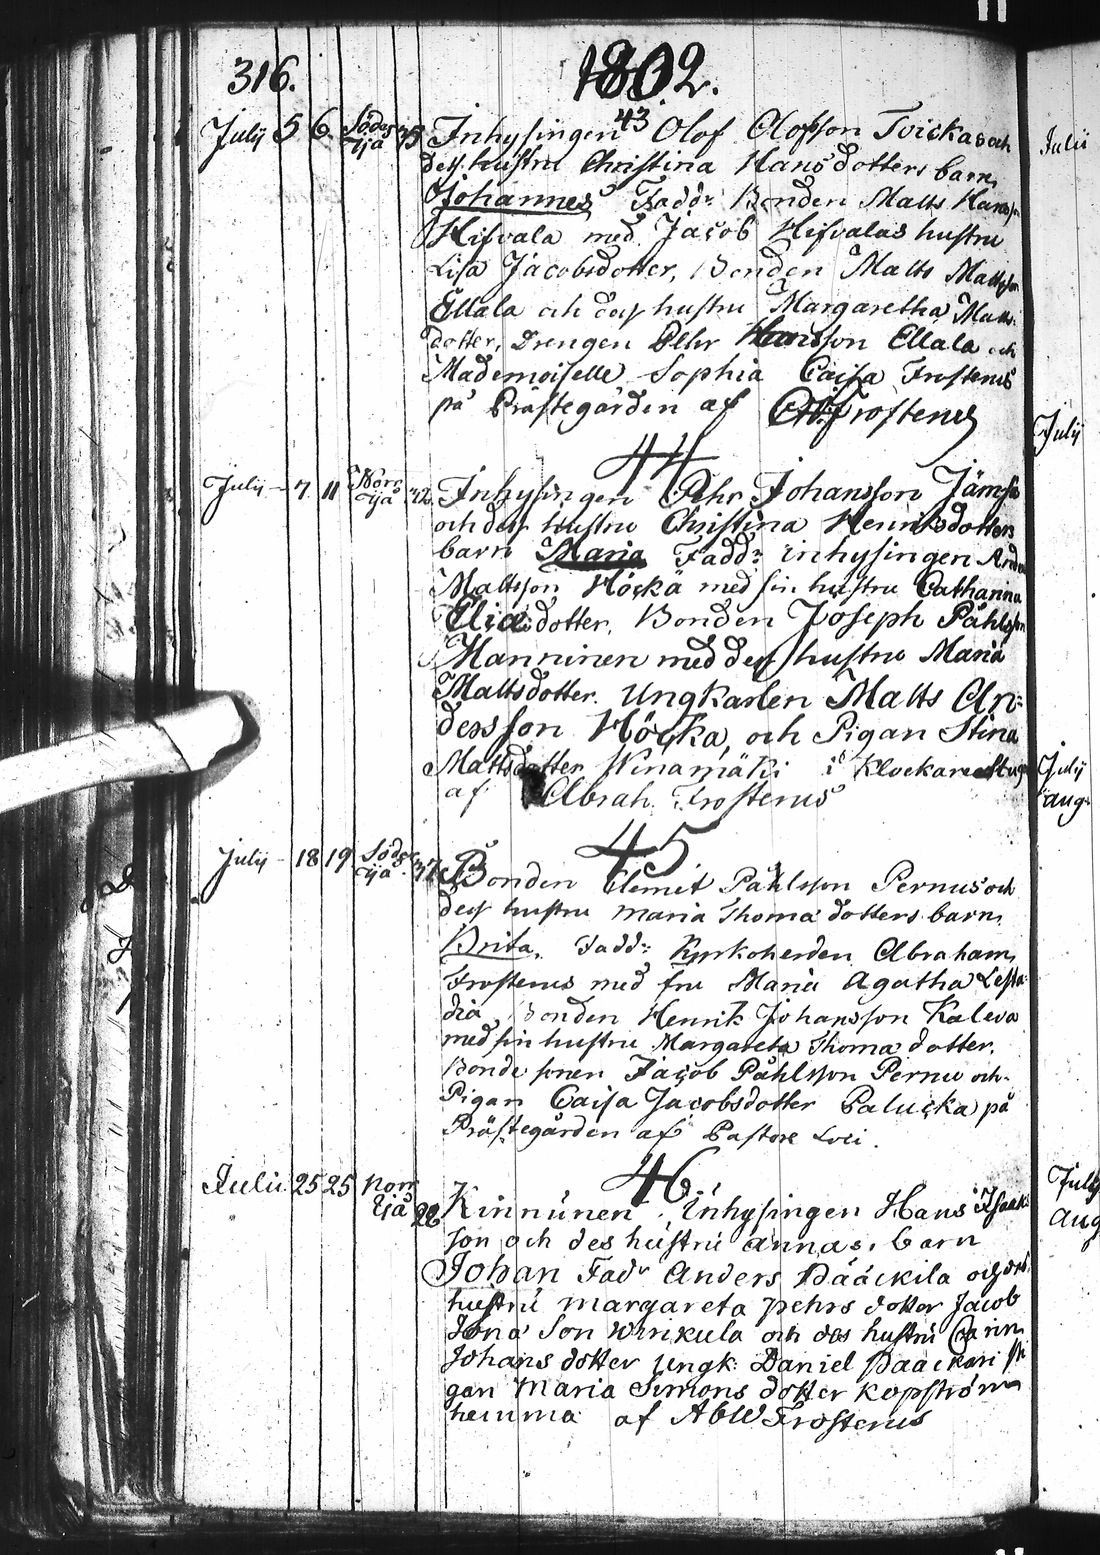 316.
1802.
43
Julij 5 6 Söder yiå Inhysingen Olof Olofsson Tvickas och
dess hustru Christina Hansdotters barn
Johannes Fadd:r Bonden Matts Hansson
Hifvala med Jacob Hifvalas hustru
Lisa Jacobsdotter, Bonden Matts Mattsson
Ellala och dess hustru Margaretha Matts
dotter, Drengen Pehr Hansson Ellala och
Mademoiselle Sophia Caisa Frosterus
på Prästegården af Frosterus
44
Julij – 7 11 Norr yiå 42 Inhysingen Pehr Johansson Jämsä
och dess hustru Christina Henriksdotters
barn Maria Fadd:r inhysingen Anders
Mattsson Höckä med sin hustru Catharina
Eliædotter, Bonden Joseph Påhlsson
Manninen med dess hustru Maria
Mattsdotter. Ungkarlen Matts An-
dersson Höcka, och Pigan Stina
Mattsdotter Winamäki i Klockarestugan
af Abrah. Frosterus
45
Julij – 18 19 Söder yiå 37 Bonden Clemet Påhlsson Pernus och
dess hustru Maria Thomædotters barn
Brita, Fadd:r Kyrkoherden Abraham
Frosterus med fru Maria Agatha Lesta-
dia, Bonden Henrik Johansson Kaleva
med sin hustru Margareta Thomædotter.
Bondesonen Jacob Påhlsson Pernu och
Pigan Caisa Jacobsdotter Palucka på
Prästegården af Pastore Loci.
46
Julii 25 25 Norr yiå 28 Kinnunen inhysingen Hans Isaak
son och des hustru annas. barn
Johan Fadr Anders Pääckilä och des
hustru margareta pehrs dotter Jacob
Jona Son Wirikula och des hustru Carin
Johans dotter Ungk: Daniel Paackari Pi
gan Maria Simons dotter Kopström
hemma af AbW Frosterus
Julii
Julij
Julij
aug.
July
aug